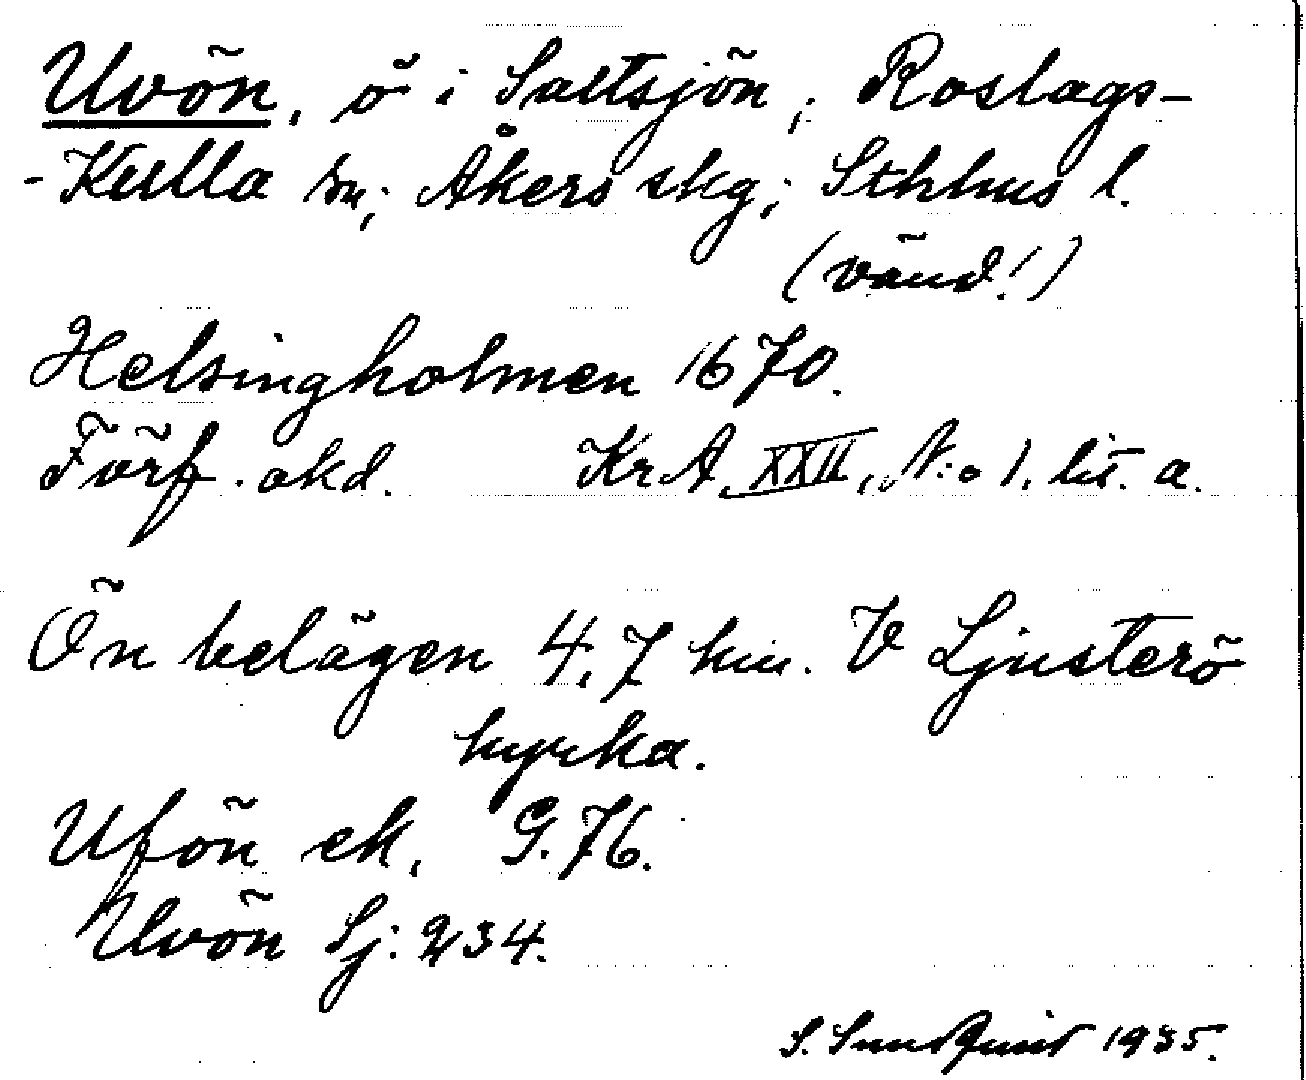 Uvön, ö i Saltsjön; Roslags-
-Kulla sn; Åkers skg; Sthlms l.
(vänd!)
Helsingholmen 1670.
Förf. okd. KrA, XXII, N:o 1. lit. a.
Ön belägen 4,7 km. V Ljusterö
kyrka.
Ufön ek, G.76.
Uvön Sj: 234.
S. Sundquist 1935.